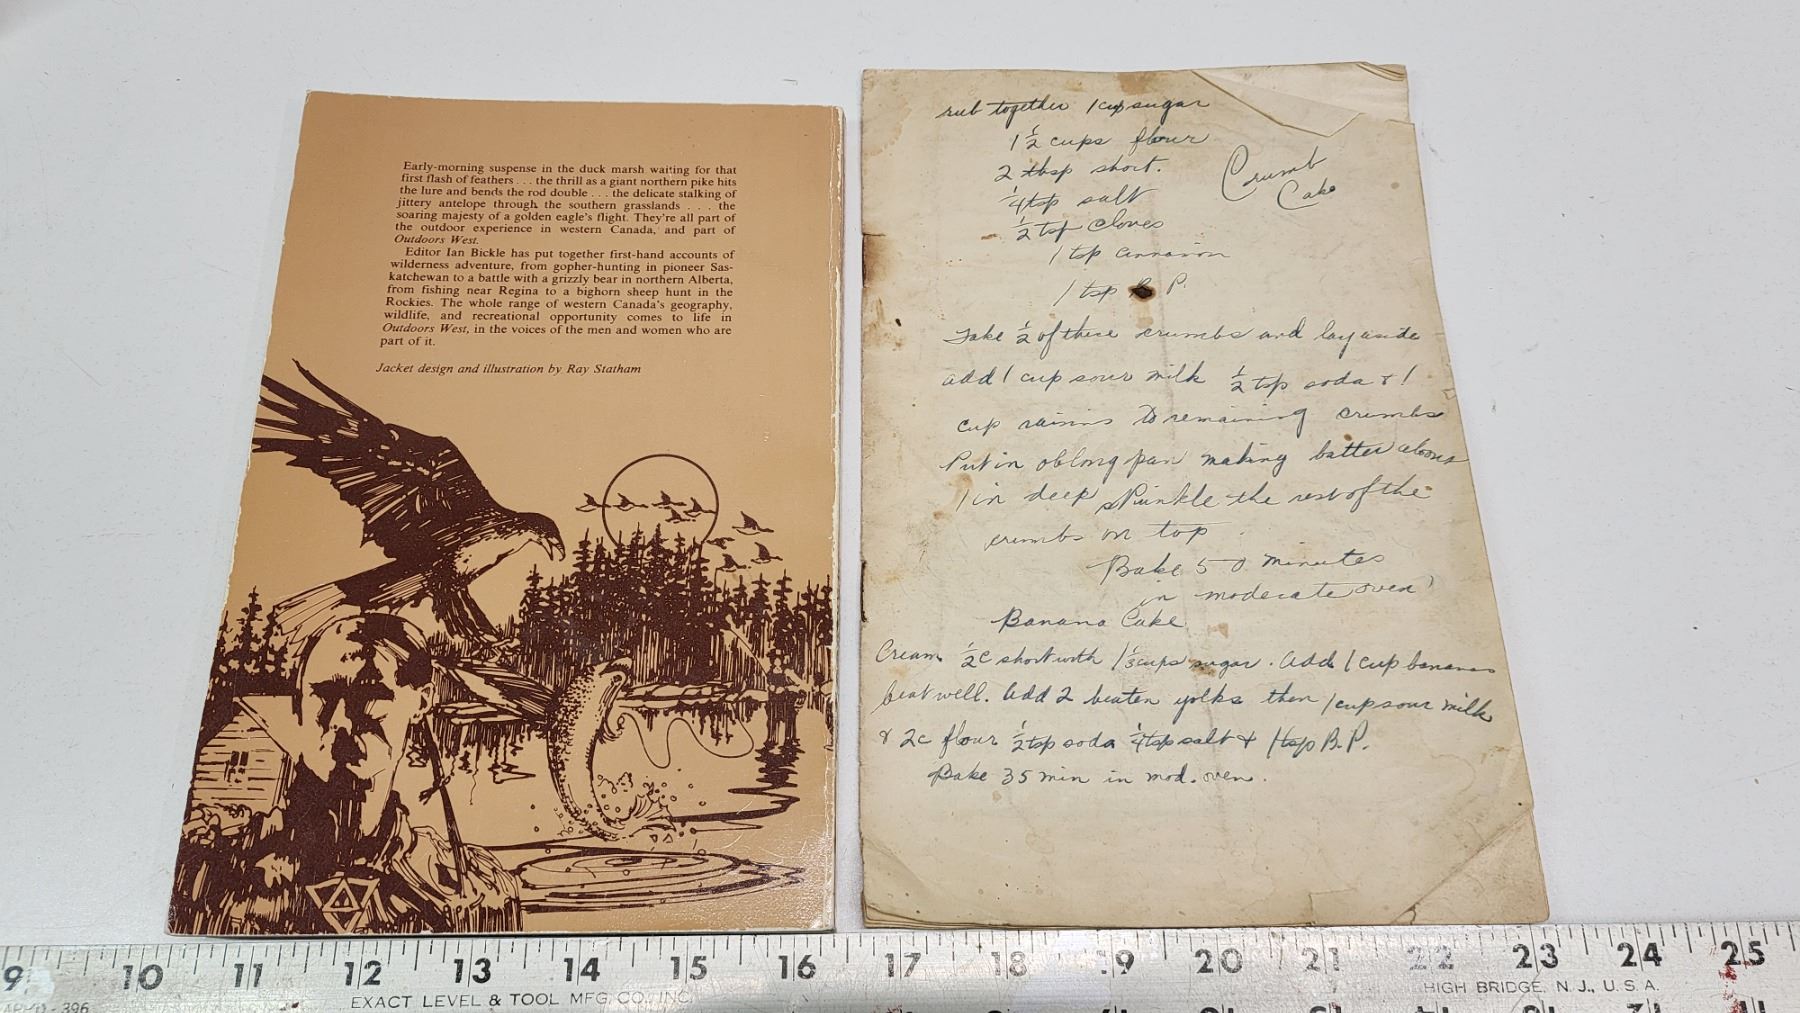 Early-morning suspense in the duck marsh waiting for that
first flash of feathers . . . the thrill as a giant northern pike hits
the lure and bends the rod double . . . the delicate stalking of
jittery antelope through the southern grasslands . . . the
soaring majesty of a golden eagle's flight. They're all part of
the outdoor experience in western Canada, and part of
Outdoors West.
Editor Ian Bickle has put together first-hand accounts of
wilderness adventure, from gopher-hunting in pioneer Sas-
katchewan to a battle with a grizzly bear in northern Alberta,
from fishing near Regina to a bighorn sheep hunt in the
Rockies. The whole range of western Canada's geography,
wildlife, and recreational opportunity comes to life in
Outdoors West, in the voices of the men and women who are
part of it.
Jacket design and illustration by Ray Statham
rub together 1 cup sugar
1 1/2 cups flour
2 tbsp short.
1/4 tsp salt
1/2 tsp cloves
1 tsp cinnamon
1 tsp B. P.
Crumb
Cake
Take 1/2 of these crumbs and lay aside
add 1 cup sour milk 1/2 tsp soda & 1
cup raisins to remaining crumbs
Put in oblong pan making batter about
1 in deep sprinkle the rest of the
crumbs on top
Bake 50 minutes
in moderate oven
Banana Cake
Cream 1/2 c short with 1 1/3 cups sugar. Add 1 cup bananas
beat well. Add 2 beaten yolks then 1 cup sour milk
& 2c flour 1/2 tsp soda 1/4 tsp salt & 1 tsp B.P.
Bake 35 min in mod. oven.
9 10 11 12 13 14 15 16 17 18 19 20 21 22 23 24 25
EXACT LEVEL & TOOL MFG. CO., INC. HIGH BRIDGE, N. J., U. S. A.
396